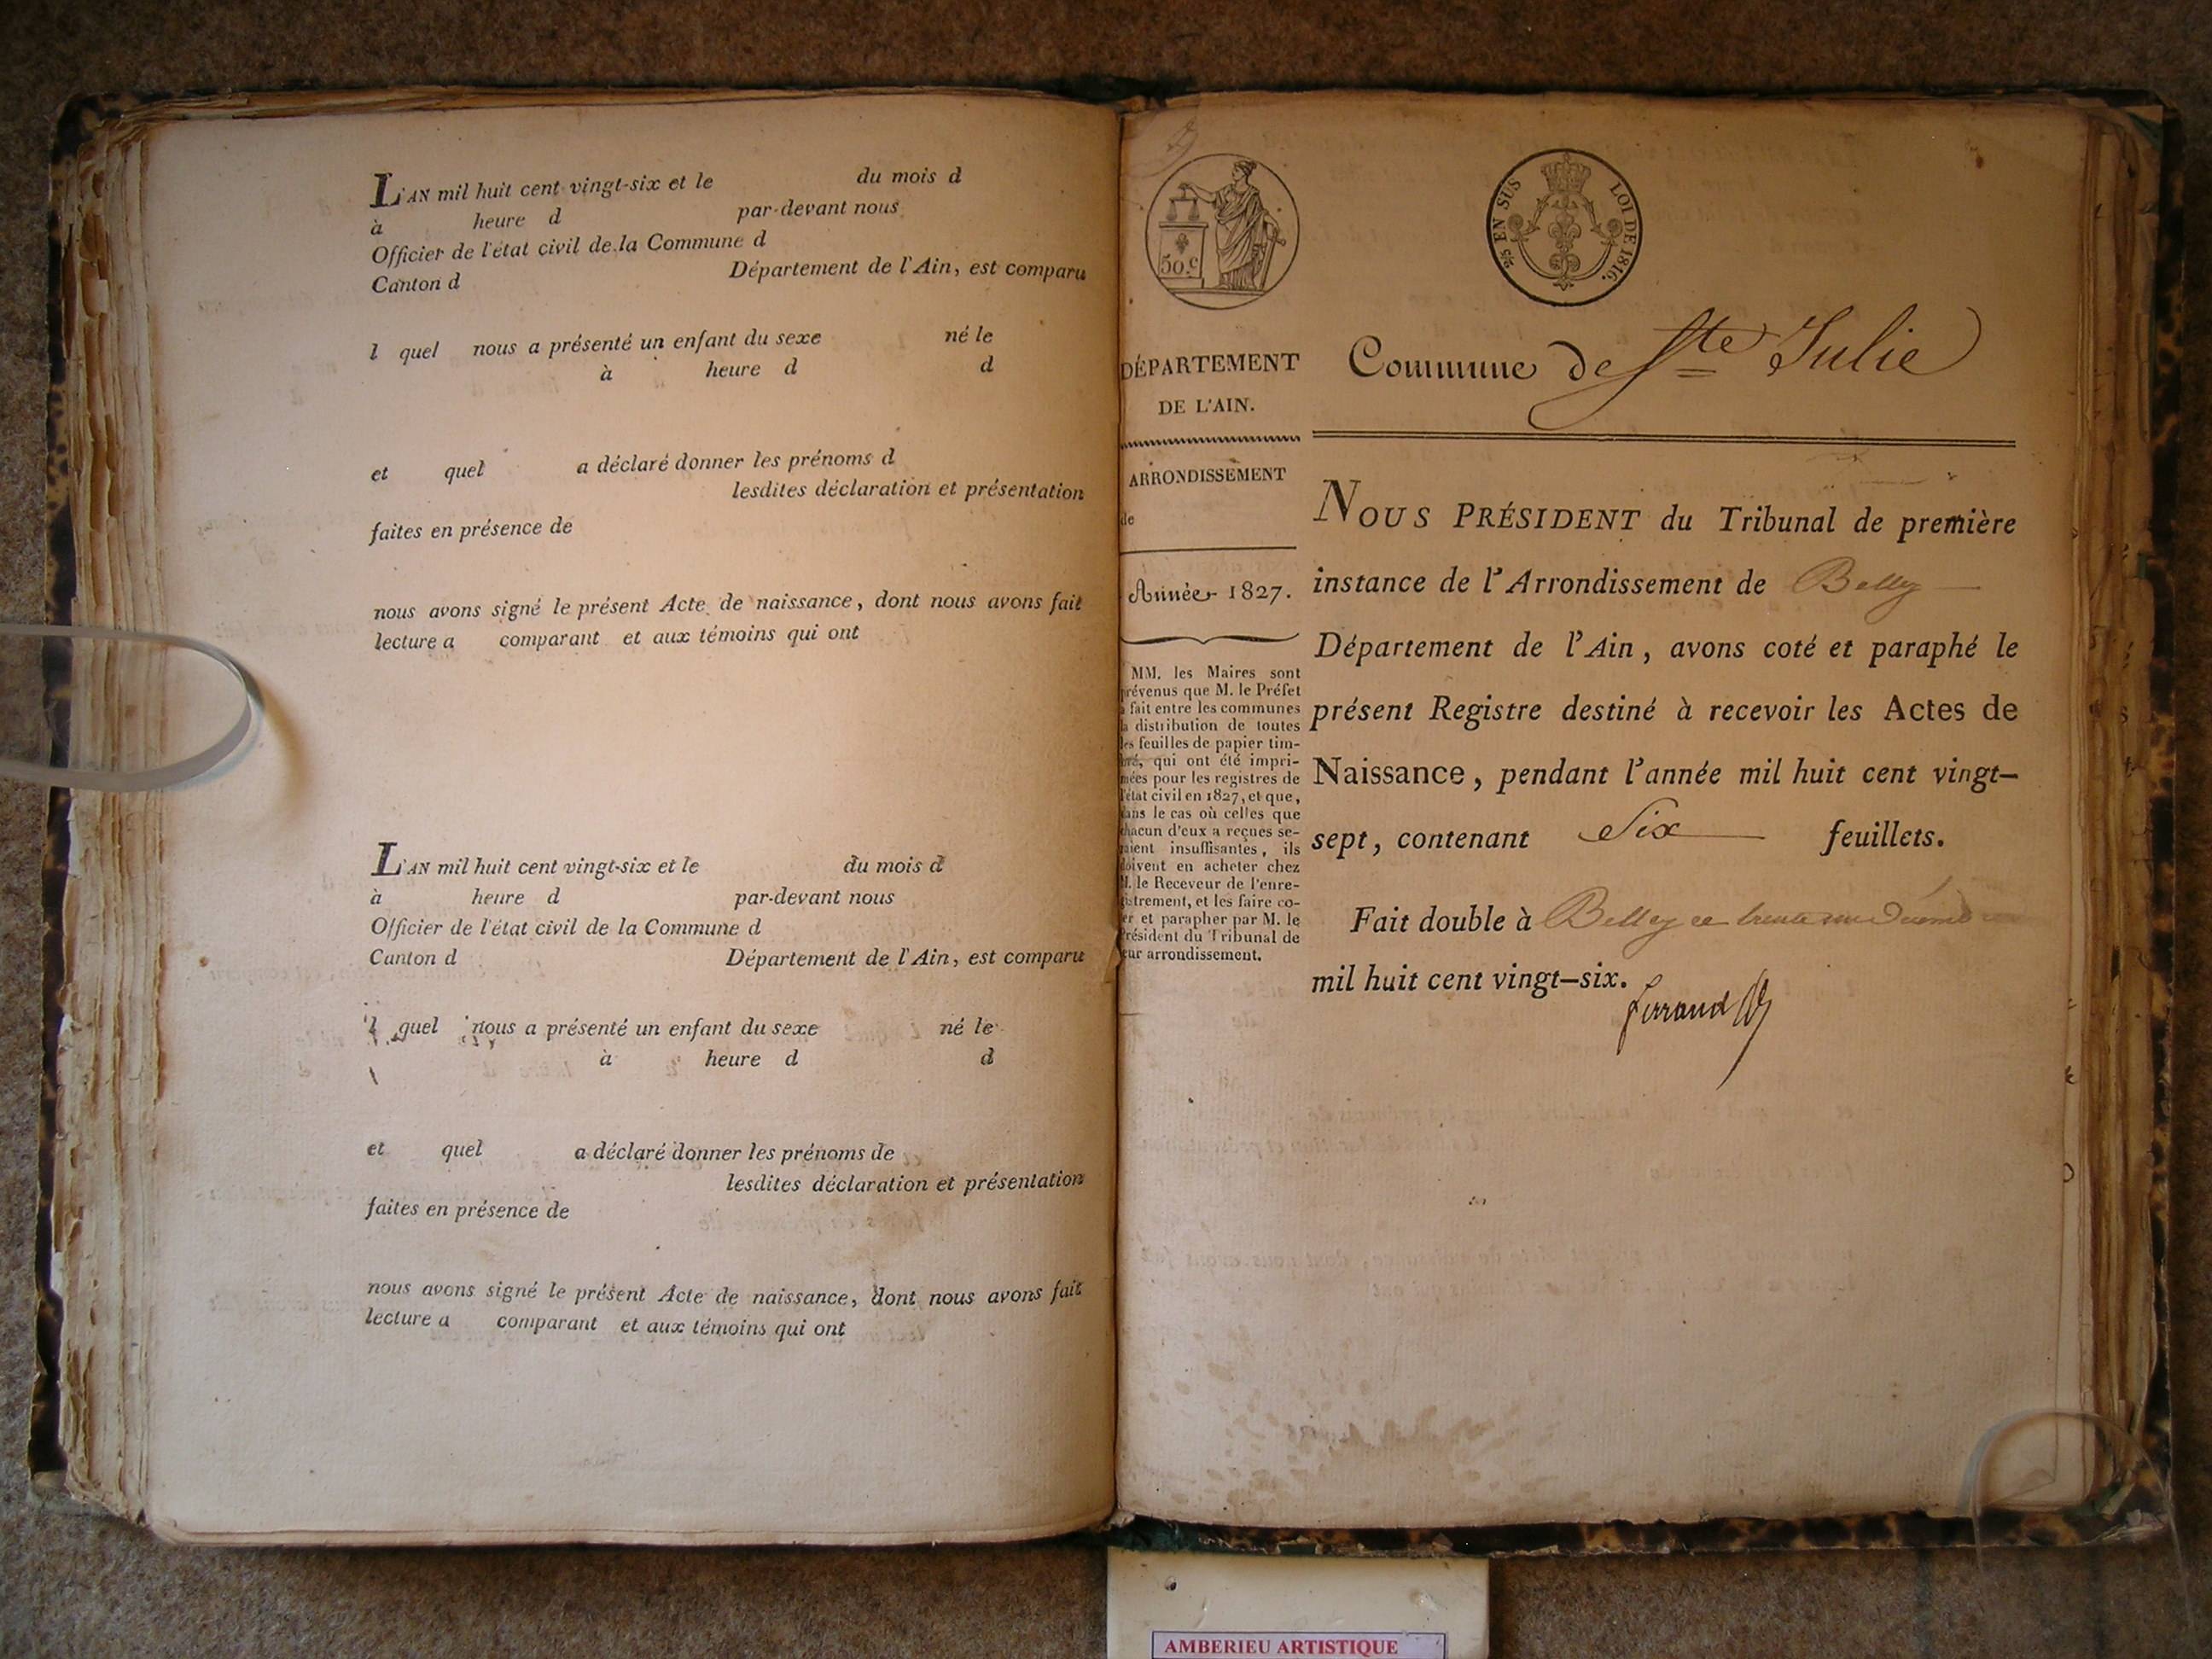 L'AN mil huit cent vingt-six et le du mois d
à heure d par-devant nous
Officier de l'état civil de la Commune d
Canton d Département de l'Ain, est comparu
l quel nous a présenté un enfant du sexe né le
à heure d d
et quel a déclaré donner les prénoms d
lesdites déclaration et présentation
faites en présence de
nous avons signé le présent Acte de naissance, dont nous avons fait
lecture a comparant et aux témoins qui ont
L'AN mil huit cent vingt-six et le du mois d
à heure d par-devant nous
Officier de l'état civil de la Commune d
Canton d Département de l'Ain, est comparu
l quel nous a présenté un enfant du sexe né le
à heure d d
et quel a déclaré donner les prénoms de
lesdites déclaration et présentation
faites en présence de
nous avons signé le présent Acte de naissance, dont nous avons fait
lecture a comparant et aux témoins qui ont
50.c
25 EN SUS LOI DE 1816.
DÉPARTEMENT
DE L'AIN.
ARRONDISSEMENT
de
Année 1827.
MM. les Maires sont
prévenus que M. le Préfet
a fait entre les communes
la distribution de toutes
les feuilles de papier tim-
bré, qui ont été impri-
mées pour les registres de
l'état civil en 1827, et que,
dans le cas où celles que
chacun d'eux a reçues se-
raient insuffisantes, ils
doivent en acheter chez
M. le Receveur de l'enre-
gistrement, et les faire co-
ter et parapher par M. le
Président du Tribunal de
leur arrondissement.
Commune de Ste Julie
NOUS PRÉSIDENT du Tribunal de première
instance de l'Arrondissement de Belley
Département de l'Ain, avons coté et paraphé le
présent Registre destiné à recevoir les Actes de
Naissance, pendant l'année mil huit cent vingt-
sept, contenant Six feuillets.
Fait double à Belley ce trente un Décemb
mil huit cent vingt-six.
AMBERIEU ARTISTIQUE